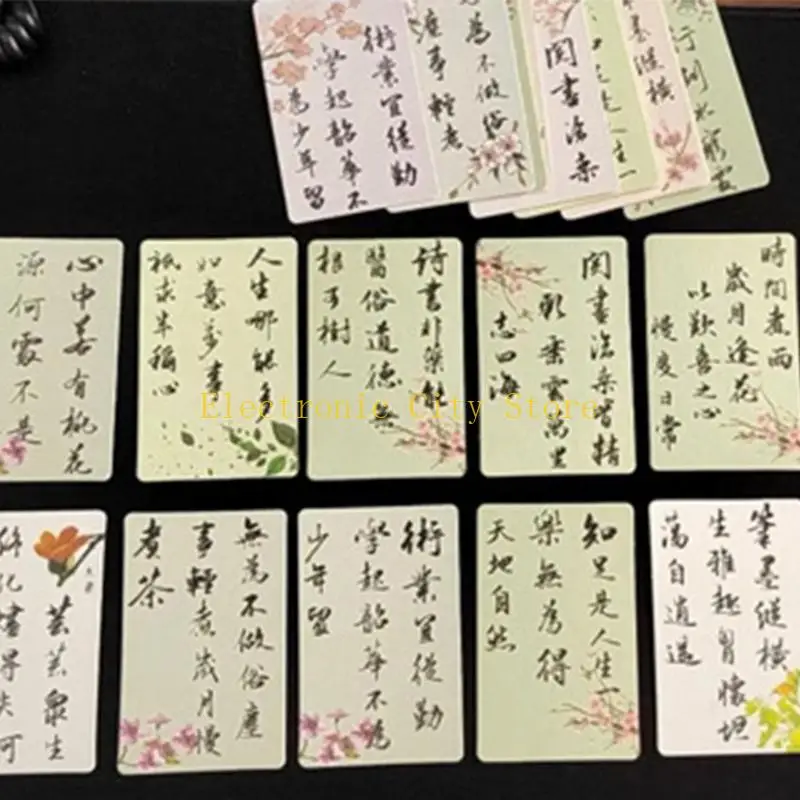 術業宜從勤
學起韶華不
為少年留
為不做俗
塵事輕煮
閱書法柔
足是人生一
墨縱橫
行到水窮
心中若有桃花
源何處不是
人生哪能多
如意萬事
祇求半稱心
詩書非藥能
醫俗道德無
根可樹人
閱書法柔皆精
乘雲萬里
志四海
時間煮雨
歲月逢花
以歡喜之心
慢度日常
Electronic City Store
芸芸眾生
無為不做俗塵
事輕煮歲月慢
煮茶
術業宜從勤
學起韶華不為
少年留
知足是人生一
樂無為得
天地自然
筆墨縱橫
生雅趣胸懷坦
蕩自逍遥